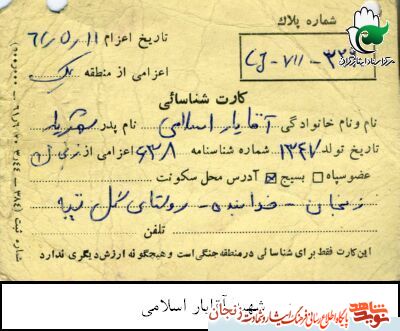 شماره پلاك
CJ-VII-۳۲۹
تاریخ اعزام ۶۲/۵/۱۱
اعزامی از منطقه یک
کارت شناسائی
نام و نام خانوادگی آقایار اسلامی نام پدر شهریار
تاریخ تولد ۱۳۴۷ شماره شناسنامه ۶۳۸ اعزامی از
عضو سپاه بسیج آدرس محل سکونت
زنجان - خدابنده - روستای گل تپه
تلفن
این کارت فقط برای شناسائی در منطقه جنگی است و هیچگونه ارزش دیگری ندارد
شماره ثبت
مرکز اسناد ایثارگران
شهید آقایار اسلامی
نوید شاهد
پایگاه اطلاع رسانی فرهنگ ایثار و شهادت زنجان